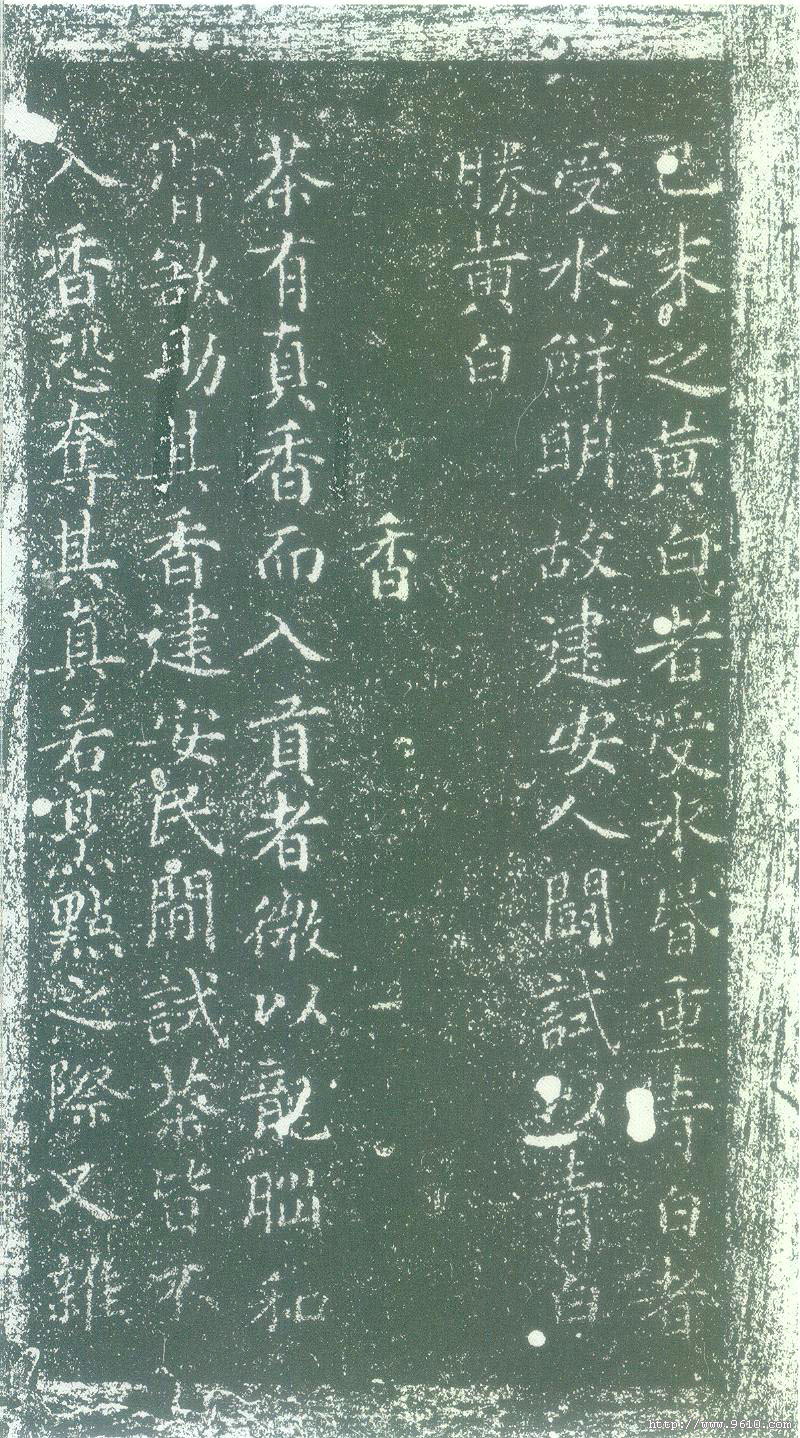 已末之黄白者受水昏重青白者
受水鮮明故建安人鬭試以青白
勝黄白
香
茶有真香而入貢者微以龍腦和
膏欲助其香建安民間試茶皆不
入香恐奪其真若烹點之際又雜
http://www.9610.com